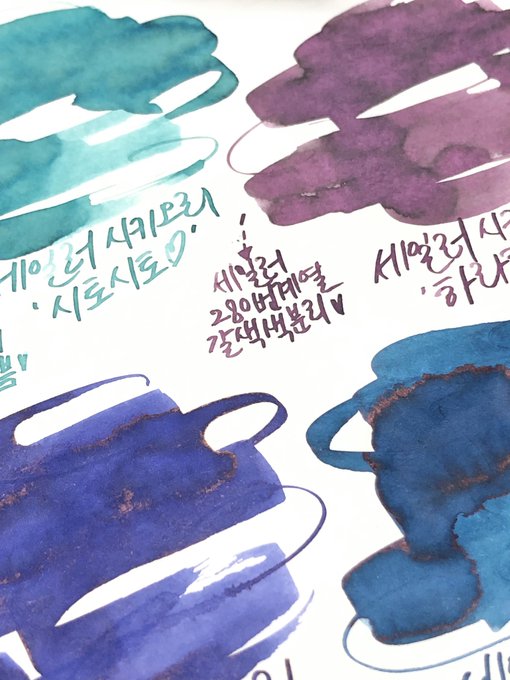 세일러 시키오리
'시토시토♡'
세일러
280번계열
갈색색분리♥
세일러 시키
'하라